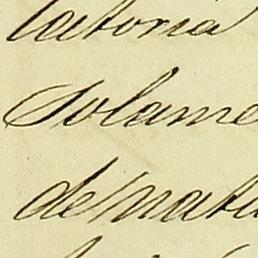 latoria
Solame
de natu